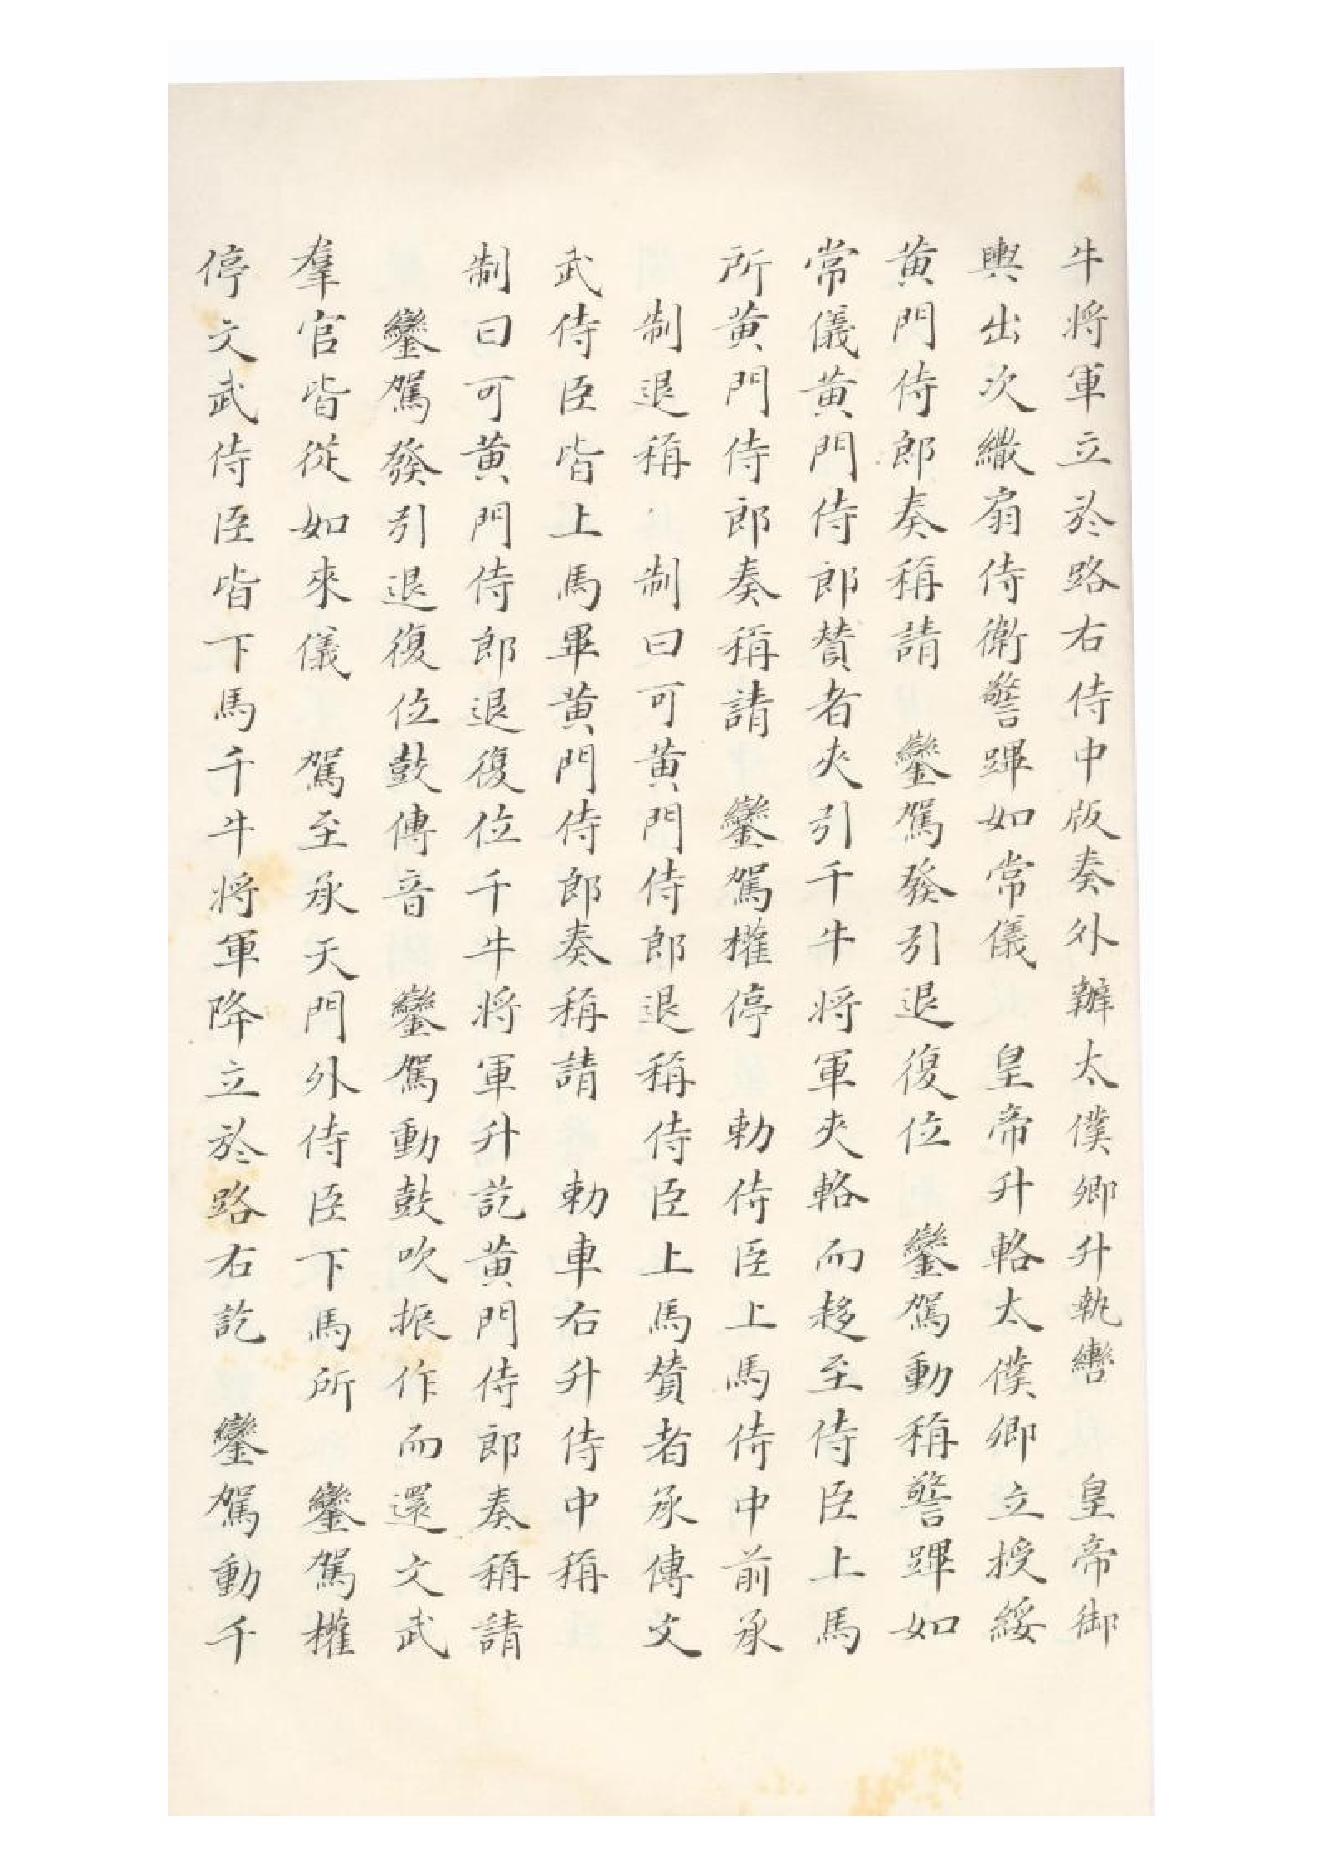 牛將軍立於路右侍中版奏外辦太僕卿升執轡　皇帝御
輿出次繖扇侍衛警蹕如常儀　皇帝升輅太僕卿立授綏
黃門侍郎奏稱請　鑾駕發引退復位　鑾駕動稱警蹕如
常儀黃門侍郎贊者夾引千牛將軍夾輅而趍至侍臣上馬
所黃門侍郎奏稱請　鑾駕權停　勅侍臣上馬侍中前承
制退稱　制曰可黃門侍郎退稱侍臣上馬贊者承傳文
武侍臣皆上馬畢黃門侍郎奏稱請　勅車右升侍中稱
制曰可黃門侍郎退復位千牛將軍升訖黃門侍郎奏稱請
鑾駕發引退復位鼓傳音　鑾駕動鼓吹振作而還文武
羣官皆從如來儀　駕至承天門外侍臣下馬所　鑾駕權
停文武侍臣皆下馬千牛將軍降立於路右訖　鑾駕動千